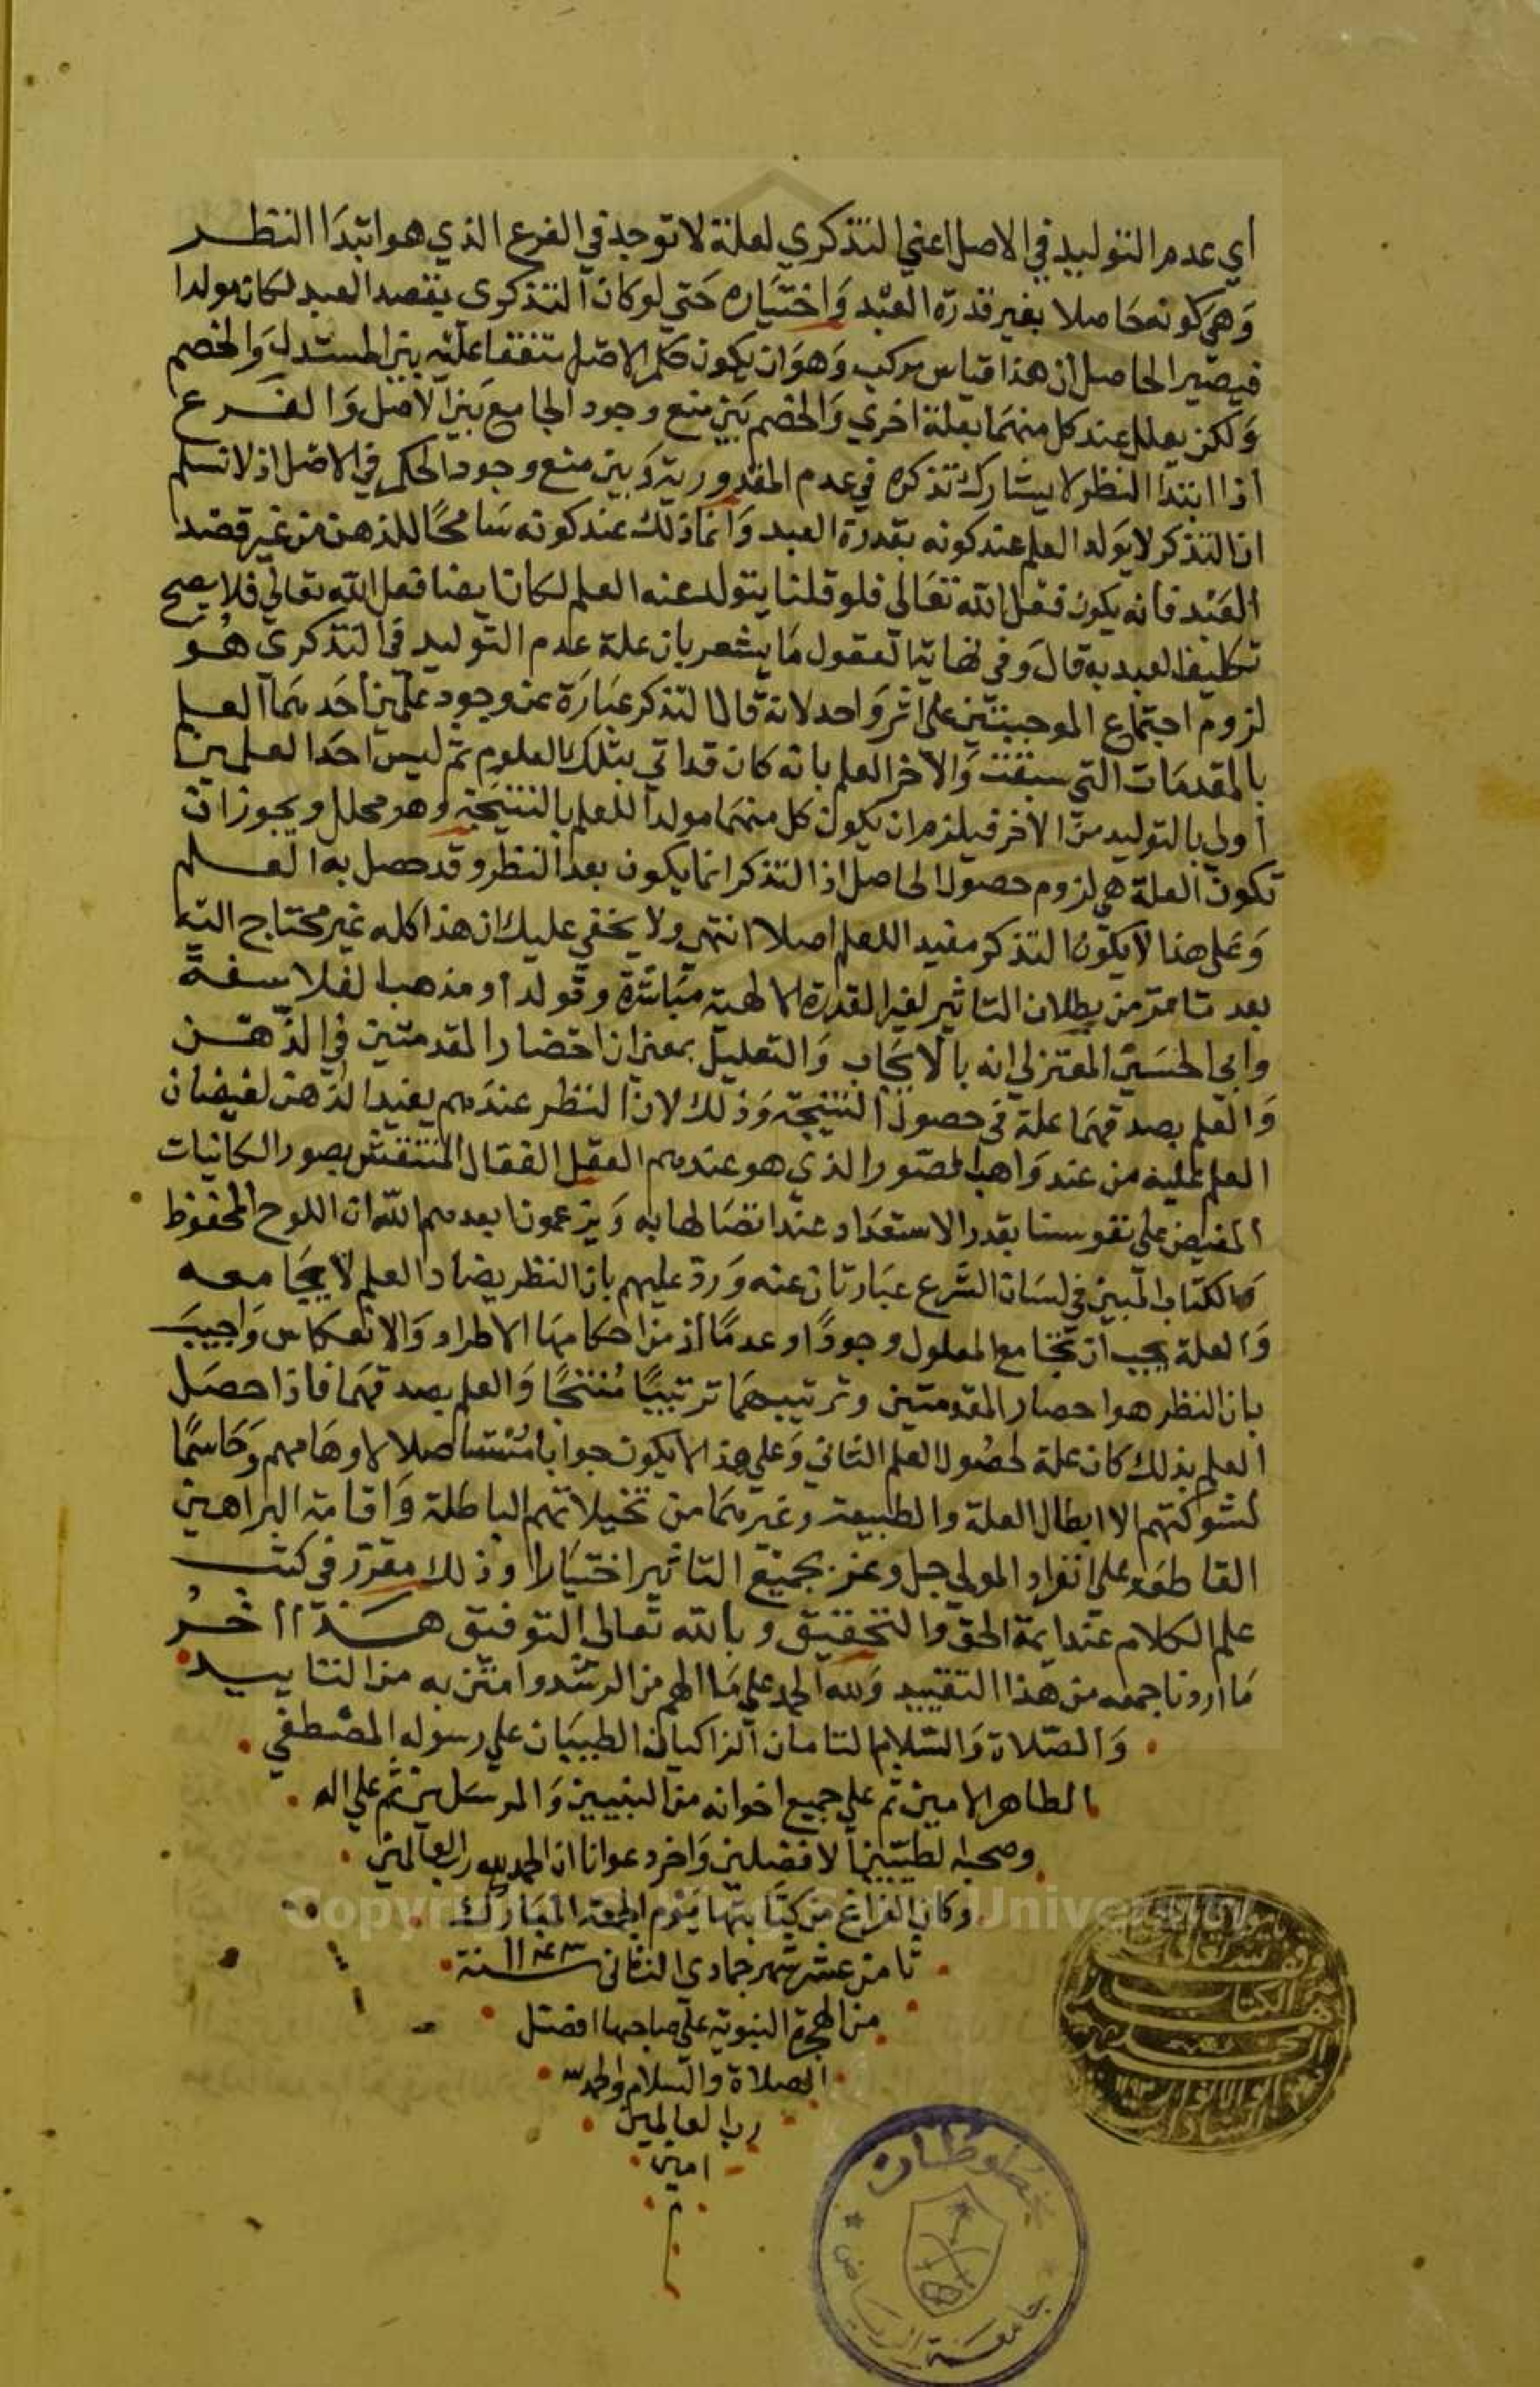 أي عدم التوليد في الاصل اعني التذكري لعلة لا توجد في الفرع الذي هو ابتدا النظر
وهي كونه حاصلا بغير قدرة العبد واختياره حتي لو كان التذكري بقصد العبد لكان مولدا
فيصير الحاصل ان هذا قياس مركب وهو ان يكون حكم الاصل متفقا عليه بين المستدل والخصم
ولكن يعلل عند كل منهما بعلة اخري والخصم بين منع وجود الجامع بين الاصل والفرع
اذ ابتدا النظر لا يشارك تذكره في عدم المقدورية وبين منع وجود الحكم في الاصل اذ لا نسلم
ان التذكر لا يولد العلم عند كونه بقدرة العبد وانما ذلك عند كونه سامحا للذهن من غير قصد
العبد فانه يكون فعل الله تعالي فلو قلنا يتولد عنه العلم لكان ايضا فعل الله تعالي فلا يصح
تكليف العبد به قال وفي نهاية العقول ما يشعر بان علة عدم التوليد في التذكري هو
لزوم اجتماع الموجبتين علي اثر واحد لانه قال التذكر عبارة عن وجود علمين احدهما العلم
بالمقدمات التي سبقت والاخر العلم بانه كان قد اتي بتلك العلوم ثم ليس احد العلمين
أولي بالتوليد من الاخر فيلزم ان يكون كل منهما مولدا للعلم بالنتيجة وهو محال ويجوز ان
تكون العلة هي لزوم حصول الحاصل اذ التذكر انما يكون بعد النظر وقد حصل به العلم
وعلي هذا لا يكون التذكر مفيد اللعلم اصلا انتهي ولا يخفي عليك ان هذا كله غير محتاج اليه
بعد تا من بطلان التاثير لغير القدرة الالهية مباشرة وتولدا ومذهب الفلاسفة
وابي الحسين المعتزلي انه بالايجاب والتعليل بمعني ان احضار المقدمتين في الذهن
والعلم بصدقهما علة في حصول النتيجة وذلك لان النظر عندهم يعيد الذهن لفيضان
العلم عليه من عند واهب الصور الذي هو عندهم العقل الفعال المنتقش بصور الكائيات
المفيض علي نفوسنا بقدر الاستعداد عند اتصالها به ويزعمون ابعدهم الله ان اللوح المحفوظ
والكتاب المبين في لسان الشرع عبارتان عنه ورد عليهم بان النظر يضاد العلم لا يجامعه
والعلة يجب ان تجامع المعلول وجودًا وعدمًا اذ من احكامها الاطراد والانعكاس واجيب
بان النظر هو احضار المقدمتين وترتيبهما ترتيبًا مُنتجًا والعلم بصدقهما فاذا حصل
العلم بذلك كان علة لحصول العلم الثاني وعلي هذا لا يكون جوابا مستاصلا لاوهامهم وحاسمًا
لشوكتهم الا ابطال العلة والطبيعة وغيرهما من تخيلاتهم الباطلة واقامة البراهين
القاطعة علي انفراد المولي جل وعز بجميع التاثير اختيارا وذلك مقرر في كتب
علم الكلام عند ايمة الحق والتحقيق وبالله تعالي التوفيق هذا اخر
ما اردنا جمعه من هذا التقييد ولله الحمد علي ما الهم من الرشد وامتن به من التاييد
والصلاة والسلام التامان الزاكيان الطيبان علي رسوله المصطفي
الطاهر الامين ثم علي جميع اخوانه من النبيين والمرسلين ثم علي اله
وصحبه الطيبين الافضلين واخر دعوانا ان الحمد لله رب العالمين
وكان الفراغ من كتابتها يوم الجمعة المبارك
ثامن عشر شهر جمادي الثاني سنة
من الهجرة النبوية علي صاحبها افضل
الصلاة والسلام والحمد لله
رب العالمين
امين
م
وقف لله تعالى
هذا الكتاب
مخطوطات
جامعة الرياض
Copyright © King Saud University